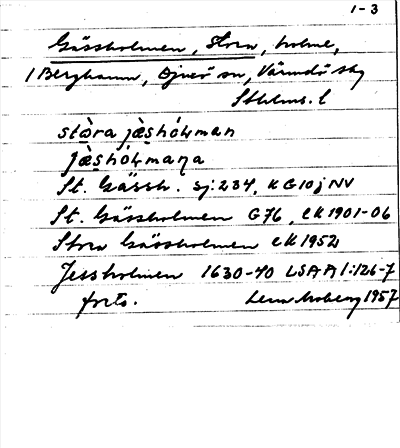 1-3
Gässholmen, Stora, holme,
i Berghamn, Djurö sn, Värmdö sky
Stholms. l
stòra jæ̀shóḷman
jæ̀shóḷmaṇa
St. Gässh. Sj:234, KG10j NV
St. Gässholmen G76, EK1901-06
Stora Gässholmen EK1952
Jessholmen 1630-40 LSA A1:126-7
forts. Lena Moberg 1957